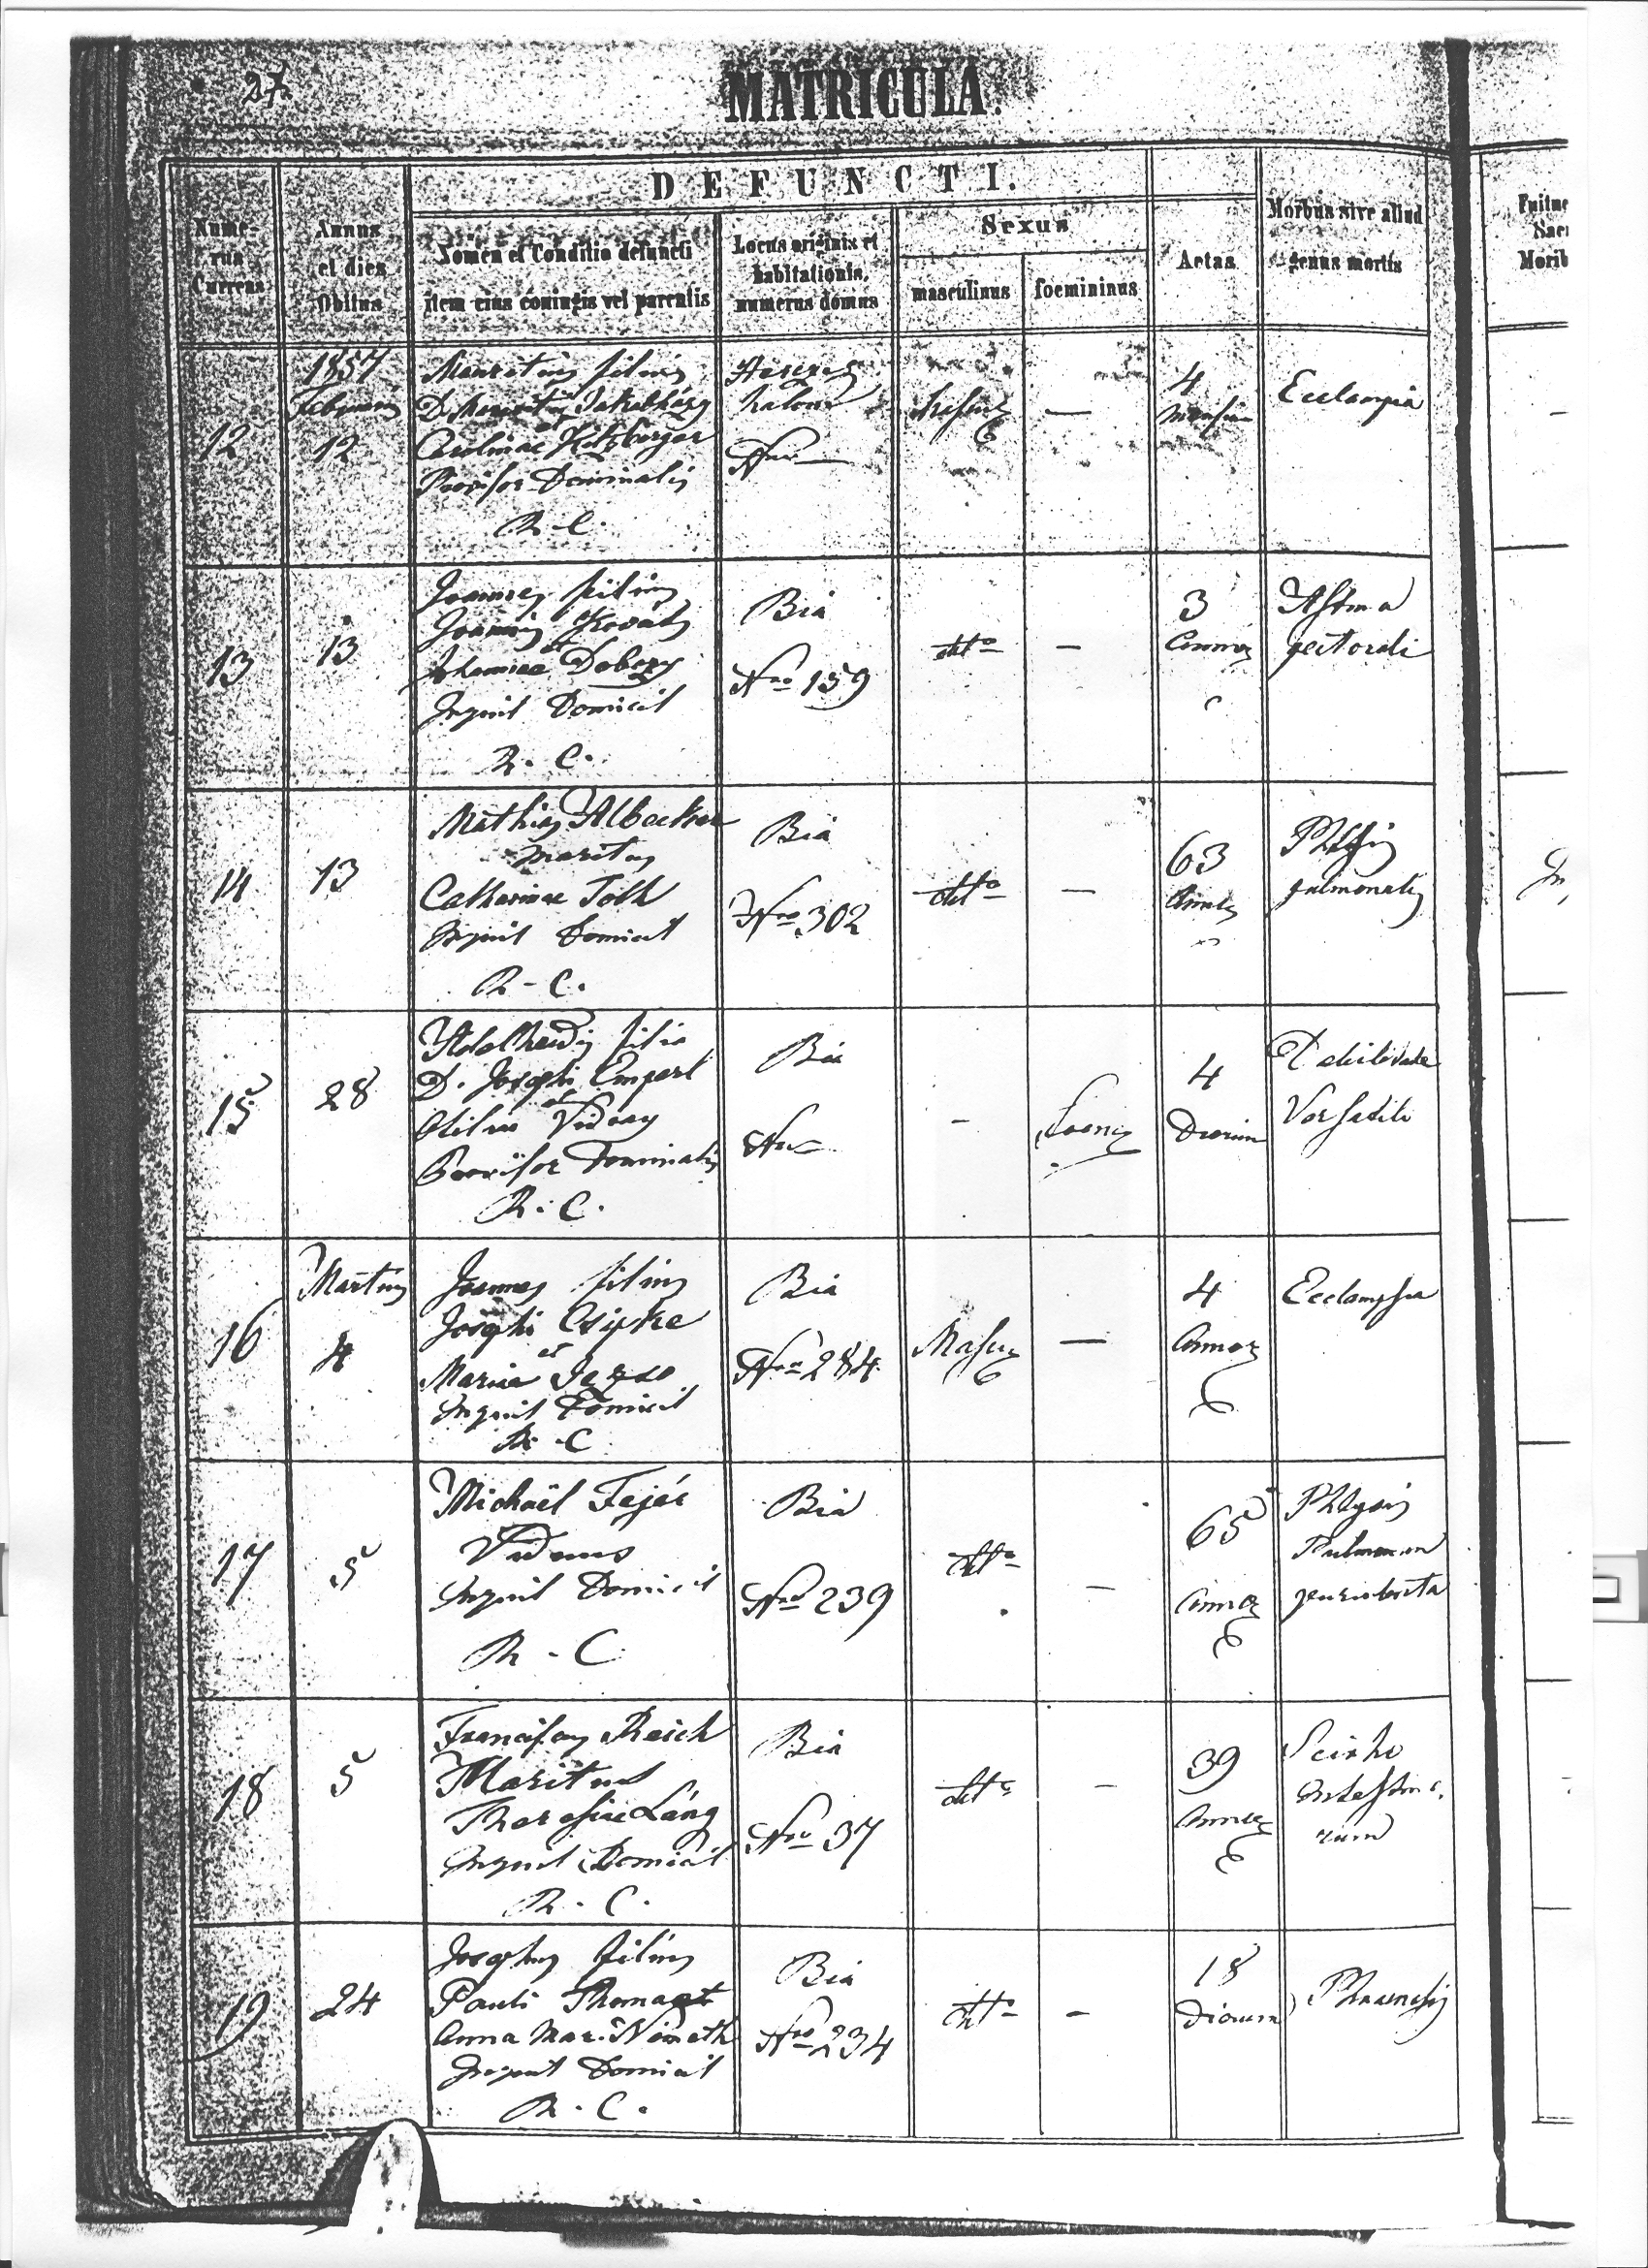 27.
MATRICULA.
DEFUNCTI.
Nume-
rus
Currens
Annus
et dies
Obitus
Nomen et Conditio defuncti
item eius coniugis vel parentis
Locus originis et
habitationis,
numerus domus
Sexus
masculinus
foemininus
Aetas
Morbus sive aliud
genus mortis
12
1857
Februarij
12
Mauritius filius
D. Mauritii
et
Carolinae Hitzberger
Provisor Dominalis
R. C.
halom
Nro —
—
4
Eclampsia
13
13
Joannes filius
Joannis Kováts
et
Dobozy
Inquil Domicil
R. C.
Bia
Nro 159
ditto
-
3
Annor
Astma
pectorali
14
13
Mathias Albecker
maritus
Catharinae Toth
Inquil Domicil
R. C.
Bia
Nro 302
ditto
—
63
Phtysis
pulmonalis
15
28
Adelheidis filia
D. Josephi Empert
et
Vidvay
Provisor Dominalis
R. C.
Bia
Nro
-
Foemi
4
Dierum
16
Martius
4
Joannes filius
Josephi Csipke
et
Mariae
Inquil Domicil
R. C.
Bia
Nro 284.
Mascu
—
4
Annor
Ecclampsia
17
5
Michaël Fejér
Viduus
Inquil Domicil
R. C.
Bia
Nro 239
ditto
—
65
Annor
Phtysis
Pulmonum
18
5
Franciscus Reich
Maritus
Theresiae Láng
Inquil Domicil
R. C.
Bia
Nro 37
ditto
—
39
Annor
19
24
Josephus filius
Pauli Thoma et
Anna Mar. Németh
Inquil Domicil
R. C.
Bia
Nro 234
ditto
-
18
Dierum